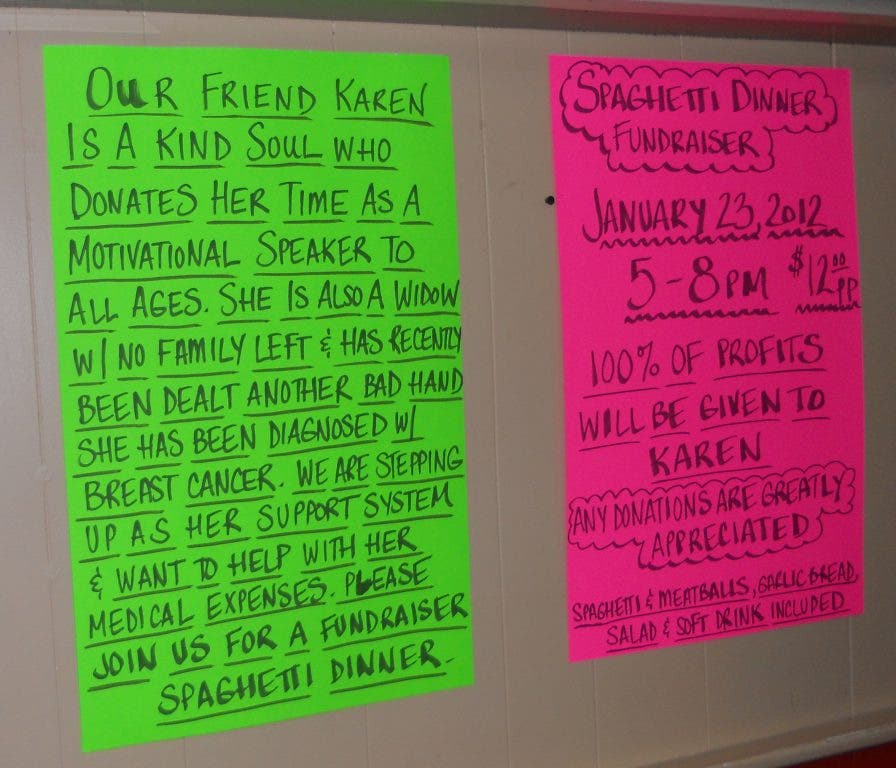 OUR FRIEND KAREN
IS A KIND SOUL WHO
DONATES HER TIME AS A
MOTIVATIONAL SPEAKER TO
ALL AGES. SHE IS ALSO A WIDOW
W/ NO FAMILY LEFT & HAS RECENTLY
BEEN DEALT ANOTHER BAD HAND
SHE HAS BEEN DIAGNOSED W/
BREAST CANCER. WE ARE STEPPING
UP AS HER SUPPORT SYSTEM
& WANT TO HELP WITH HER
MEDICAL EXPENSES. PLEASE
JOIN US FOR A FUNDRAISER
SPAGHETTI DINNER.
SPAGHETTI DINNER
FUNDRAISER
JANUARY 23, 2012
5-8PM $12.00 PP
100% OF PROFITS
WILL BE GIVEN TO
KAREN
ANY DONATIONS ARE GREATLY
APPRECIATED
SPAGHETTI & MEATBALLS, GARLIC BREAD,
SALAD & SOFT DRINK INCLUDED